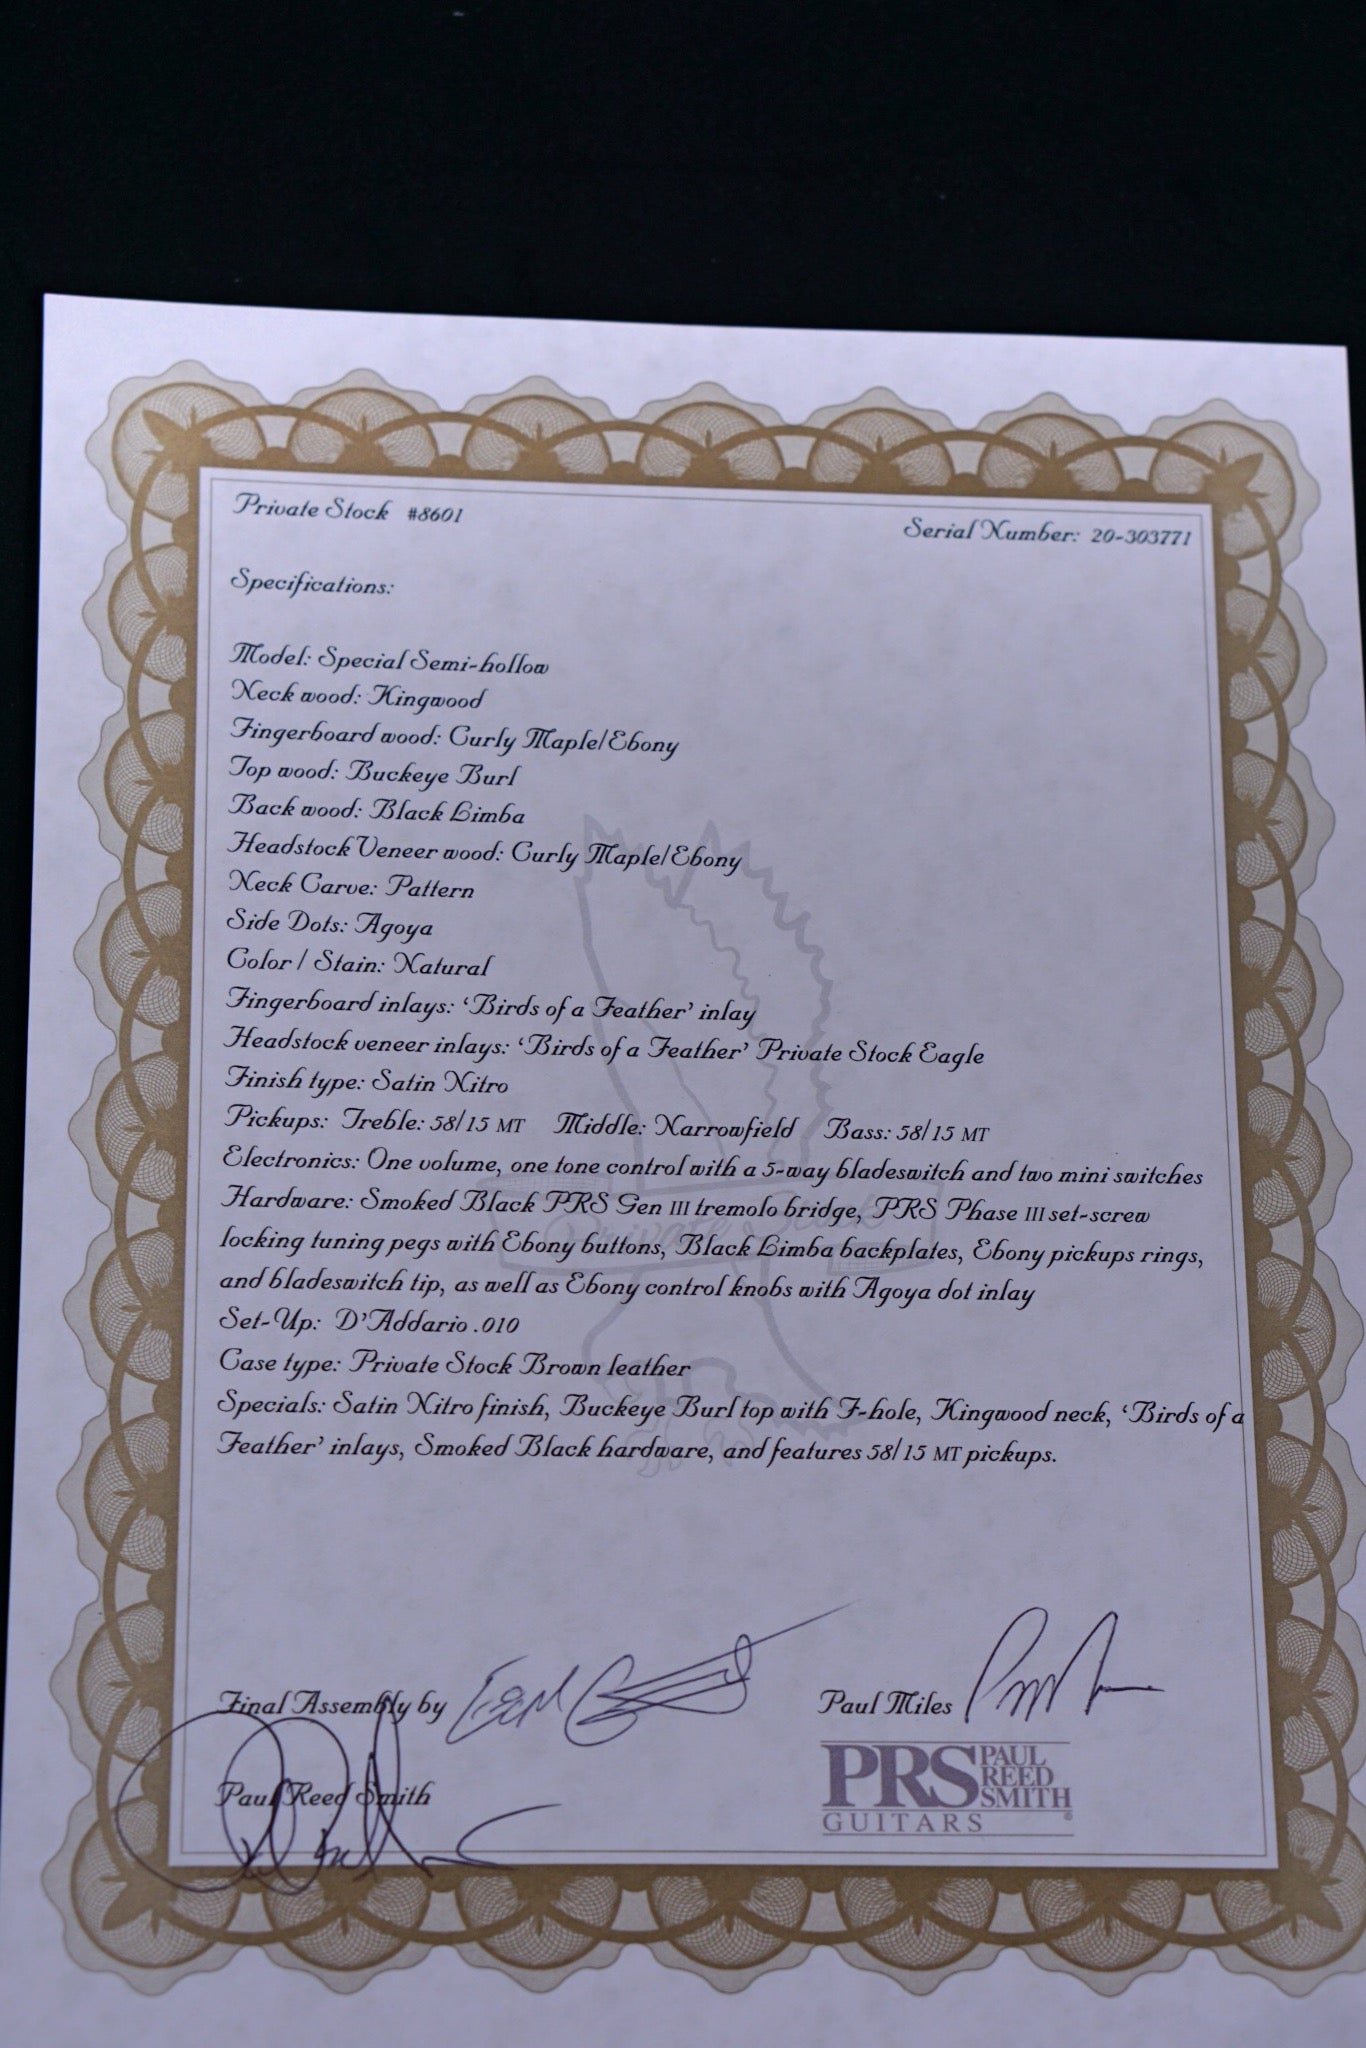 Private Stock #8601
Serial Number: 20-303771
Specifications:
Model: Special Semi-hollow
Neck wood: Kingwood
Fingerboard wood: Curly Maple/Ebony
Top wood: Buckeye Burl
Back wood: Black Limba
Headstock Veneer wood: Curly Maple/Ebony
Neck Carve: Pattern
Side Dots: Agoya
Color / Stain: Natural
Fingerboard inlays: ‘Birds of a Feather’ inlay
Headstock veneer inlays: ‘Birds of a Feather’ Private Stock Eagle
Finish type: Satin Nitro
Pickups: Treble: 58/15 MT Middle: Narrowfield Bass: 58/15 MT
Electronics: One volume, one tone control with a 5-way bladeswitch and two mini switches
Hardware: Smoked Black PRS Gen III tremolo bridge, PRS Phase III set-screw
locking tuning pegs with Ebony buttons, Black Limba backplates, Ebony pickups rings,
and bladeswitch tip, as well as Ebony control knobs with Agoya dot inlay
Set-Up: D’Addario .010
Case type: Private Stock Brown leather
Specials: Satin Nitro finish, Buckeye Burl top with F-hole, Kingwood neck, ‘Birds of a
Feather’ inlays, Smoked Black hardware, and features 58/15 MT pickups.
Private Stock
Final Assembly by
Paul Miles
Paul Reed Smith
PRS PAUL REED SMITH
GUITARS